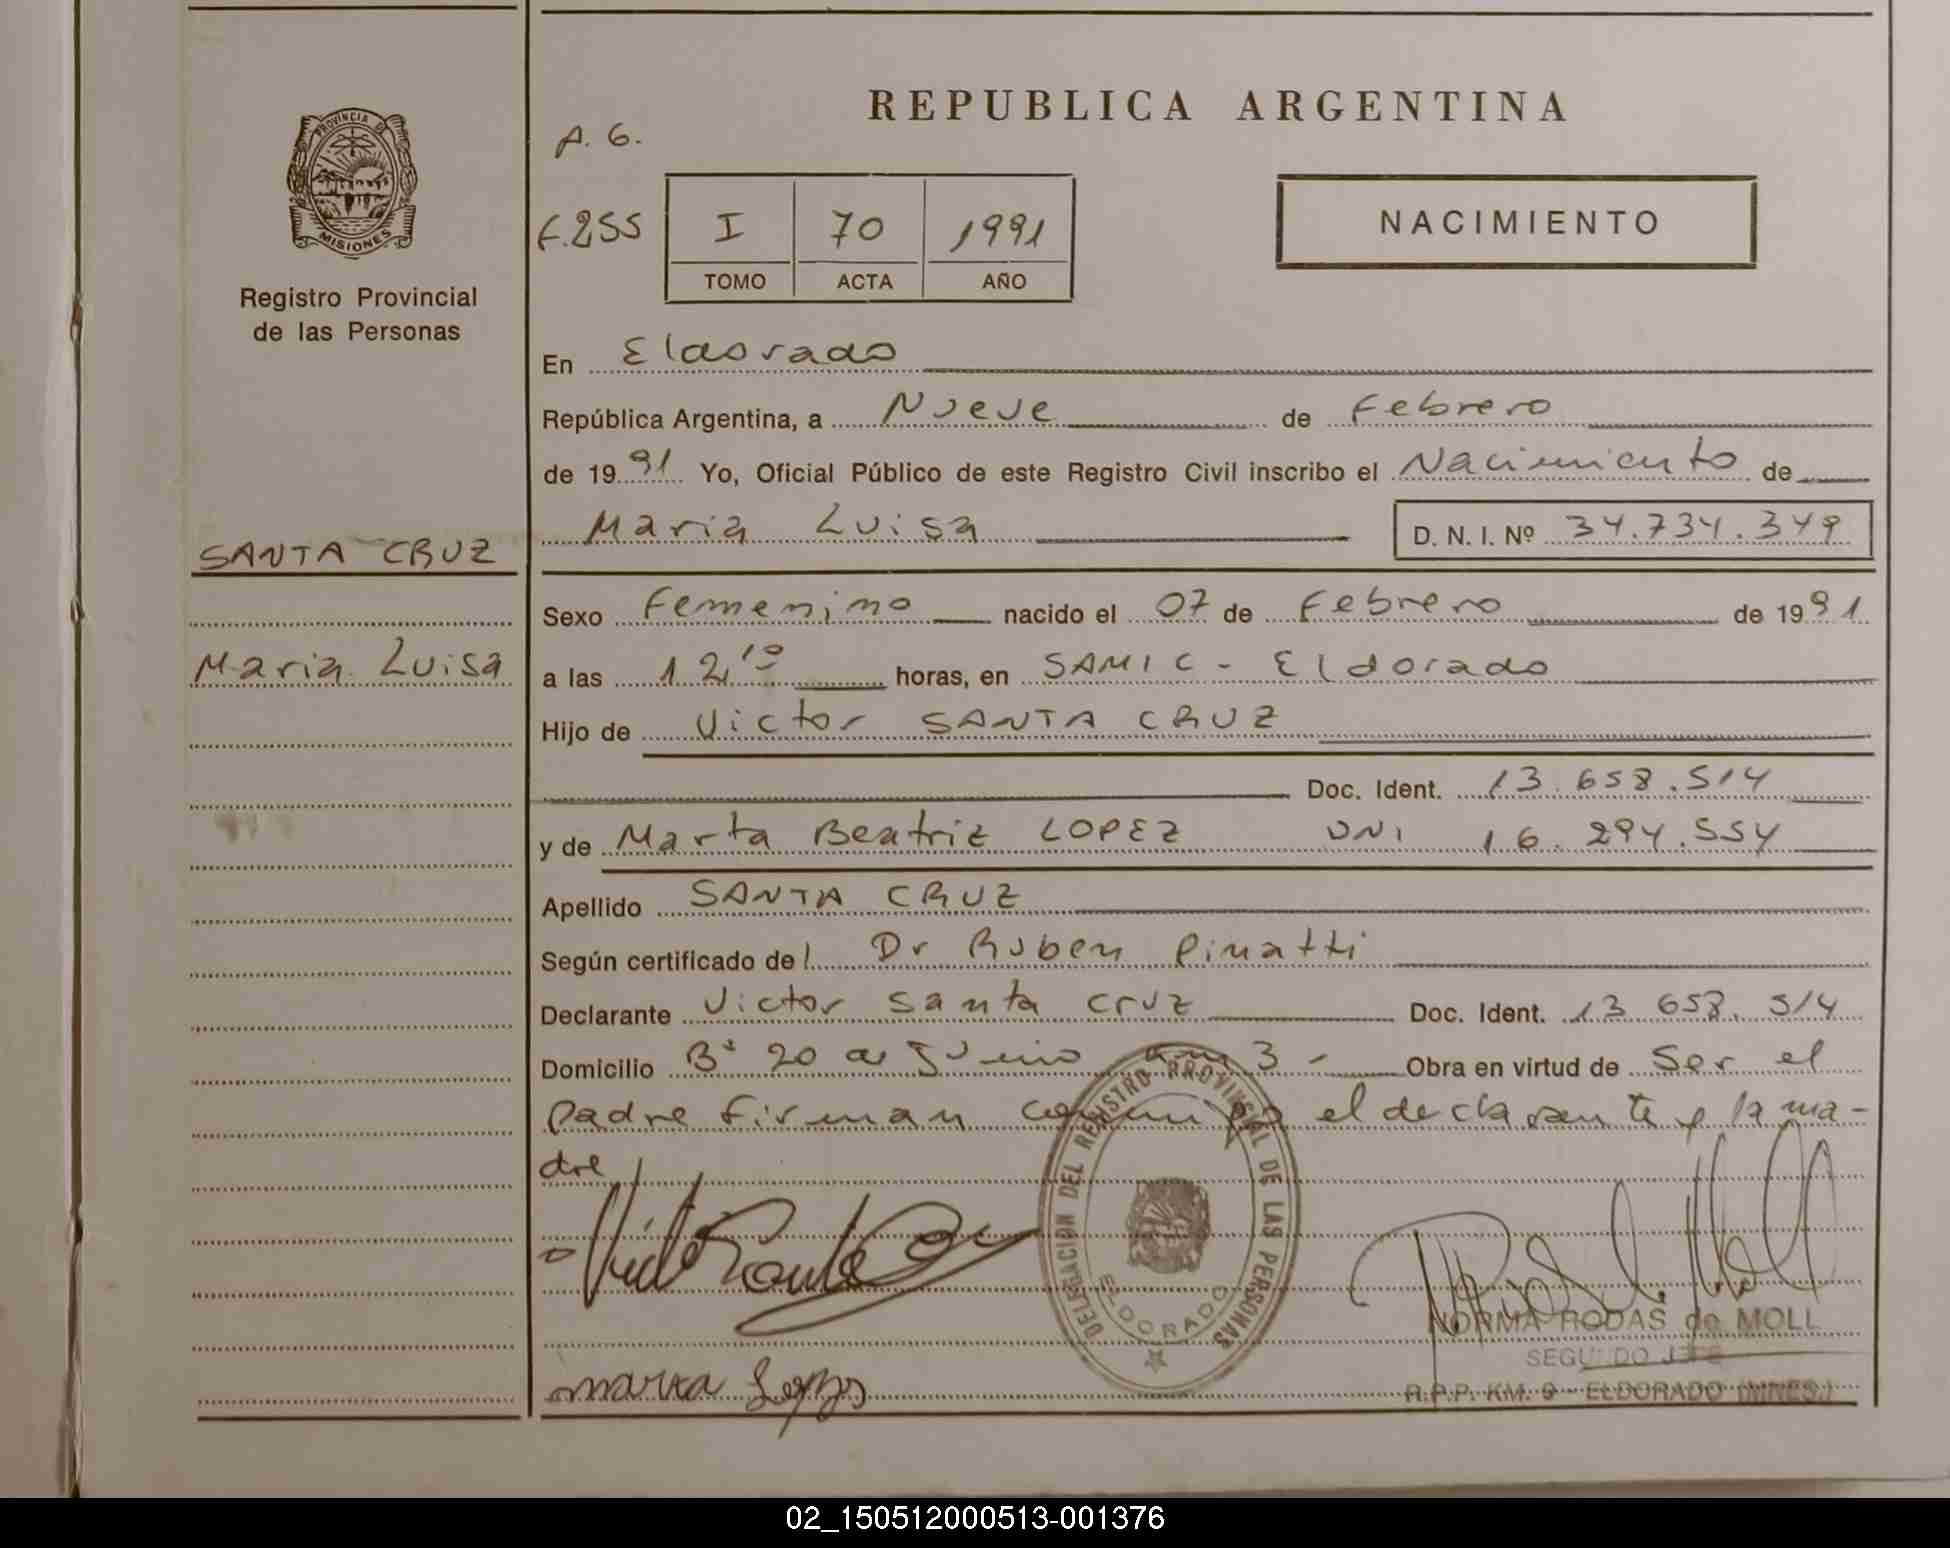 REPUBLICA ARGENTINA
A. G.
PROVINCIA DE
MISIONES
Registro Provincial
de las Personas
F. 255
I 70 1991
TOMO ACTA AÑO
NACIMIENTO
En Eldorado
República Argentina, a Nueve de Febrero
de 19 91 Yo, Oficial Público de este Registro Civil inscribo el Nacimiento de
Maria Luisa D. N. I. Nº 34.734.349
SANTA CRUZ
Maria Luisa
Sexo Femenino nacido el 07 de Febrero de 19 91
a las 12,10 horas, en SAMIC - Eldorado
Hijo de Victor SANTA CRUZ
Doc. Ident. 13.658.514
y de Marta Beatriz LOPEZ DNI 16.294.554
Apellido SANTA CRUZ
Según certificado del Dr Ruben Pinatti
Declarante Victor Santa Cruz Doc. Ident. 13.658.514
Domicilio Bº 20 de Junio km 3 - Obra en virtud de Ser el
padre Firman el declarante y la ma-
dre
DELEGACION DEL REGISTRO PROVINCIAL DE LAS PERSONAS
ELDORADO
NORMA RODAS de MOLL
SEGUNDO JEFE
R.P.P. KM. 9 - ELDORADO (MNES.)
Marta Lopez
02_150512000513-001376